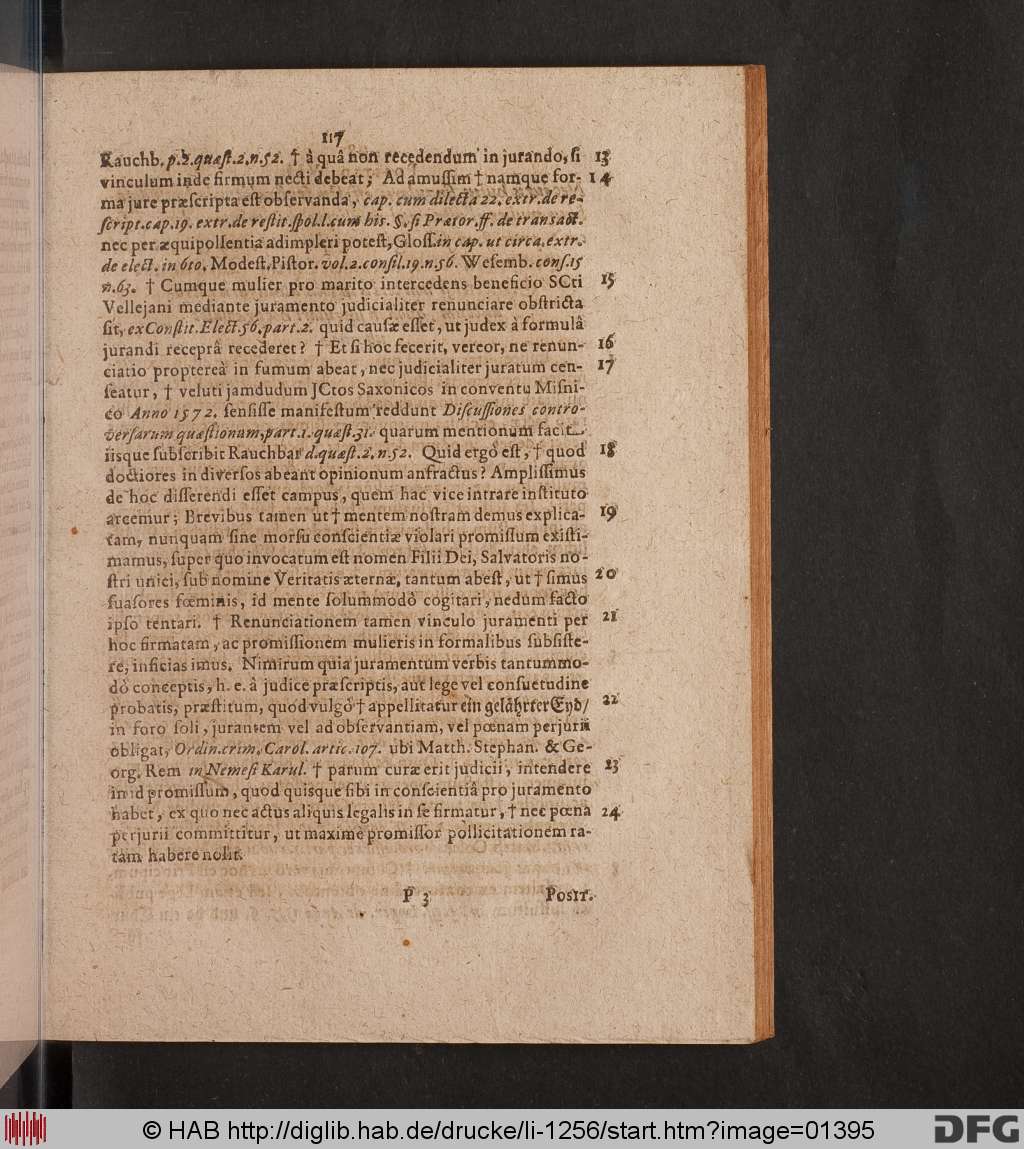 117
Rauchb. p. 2. quæſt. 2. n. 52. † à quâ non recedendum in jurando, ſi 13
vinculum inde firmum necti debeat; Ad amuſſim † namque for- 14
ma jure præſcripta eſt obſervanda, cap. cum dilecta 22. extr. de re-
ſcript. cap. 19. extr. de reſtit. ſpol. l. cum his. §. ſi Prætor. ff. de transact.
nec per æquipollentia adimpleri poteſt, Gloſſ. in cap. ut circa. extr.
de elect. in 6to. Modeſt. Piſtor. vol. 2. conſil. 19. n. 56. Weſemb. conſ. 15
n. 63. † Cumque mulier pro marito intercedens beneficio SCti 15
Vellejani mediante juramento judicialiter renunciare obſtricta
ſit, ex Conſtit. Elect. 56. part. 2. quid cauſæ eſſet, ut judex à formulâ
jurandi receptâ recederet? † Et ſi hoc fecerit, vereor, ne renun- 16
ciatio proptereà in fumum abeat, nec judicialiter juratum cen- 17
ſeatur, † veluti jamdudum JCtos Saxonicos in conventu Miſni-
co Anno 1572. ſenſiſſe manifeſtum reddunt Diſcuſſiones contro-
verſarum quæſtionum, part. 1. quæſt. 31. quarum mentionum facit
iisque ſubſcribit Rauchbar d. quæſt. 2. n. 52. Quid ergò eſt, † quod 18
doctiores in diverſos abeant opinionum anfractus? Ampliſſimus
de hoc differendi eſſet campus, quem hac vice intrare inſtituto
arcemur; Brevibus tamen ut † mentem noſtram demus explica- 19
tam, nunquam ſine morſu conſcientiæ violari promiſſum exiſti-
mamus, ſuper quo invocatum eſt nomen Filii Dei, Salvatoris no-
ſtri unici, ſub nomine Veritatis æternæ, tantum abeſt, ut † ſimus 20
ſuaſores fœminis, id mente ſolummodò cogitari, nedum facto
ipſo tentari. † Renunciationem tamen vinculo juramenti per 21
hoc firmatam, ac promiſſionem mulieris in formalibus ſubſiſte-
re, inficias imus. Nimirum quia juramentum verbis tantummo-
dò conceptis, h. e. â judice præſcriptis, aut lege vel conſuetudine
probatis, præſtitum, quod vulgò † appellitatur ein gelährter Eyd/ 22
in foro ſoli, jurantem vel ad obſervantiam, vel pœnam perjurii
obligat, Ordin. crim. Carol. artic. 107. ubi Matth. Stephan. & Ge-
org. Rem in Nemeſi Karul. † parum curæ erit judicii, intendere 23
in id promiſſum, quod quisque ſibi in conſcientiâ pro juramento
habet, ex quo nec actus aliquis legalis in ſe firmatur, † nec pœna 24
perjurii committitur, ut maximè promiſſor pollicitationem ra-
tam habere nolit.
P 3 Posit.
© HAB http://diglib.hab.de/drucke/li-1256/start.htm?image=01395
DFG